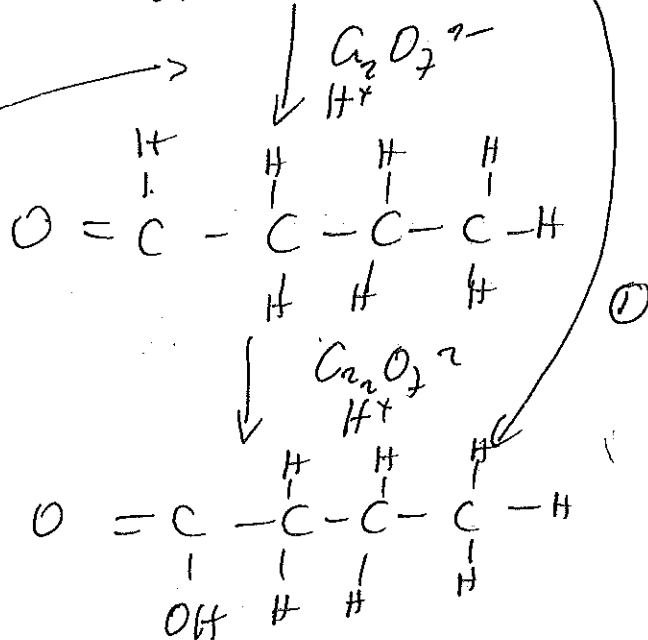 Cr₂O₇²⁻
H⁺
H H H H
O = C - C - C - C - H
H H H
①
Cr₂O₇²
H⁺
H H H
O = C - C - C - C - H
OH H H H